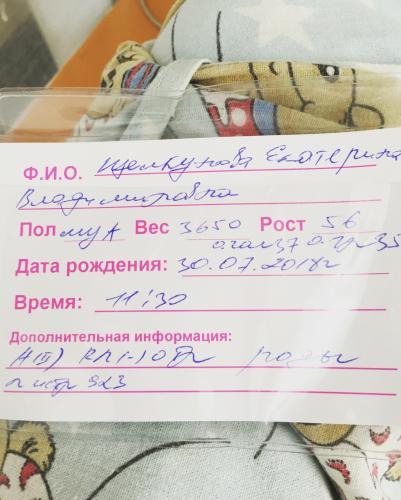 Ф.И.О. Щелкунова Екатерина
Владимировна
Пол муж Вес 3650 Рост 56
о.гол 37 о.гр 35
Дата рождения: 30.07.2018г
Время: 11:30
Дополнительная информация:
A(II) Rh(-) роды
№ истр 923